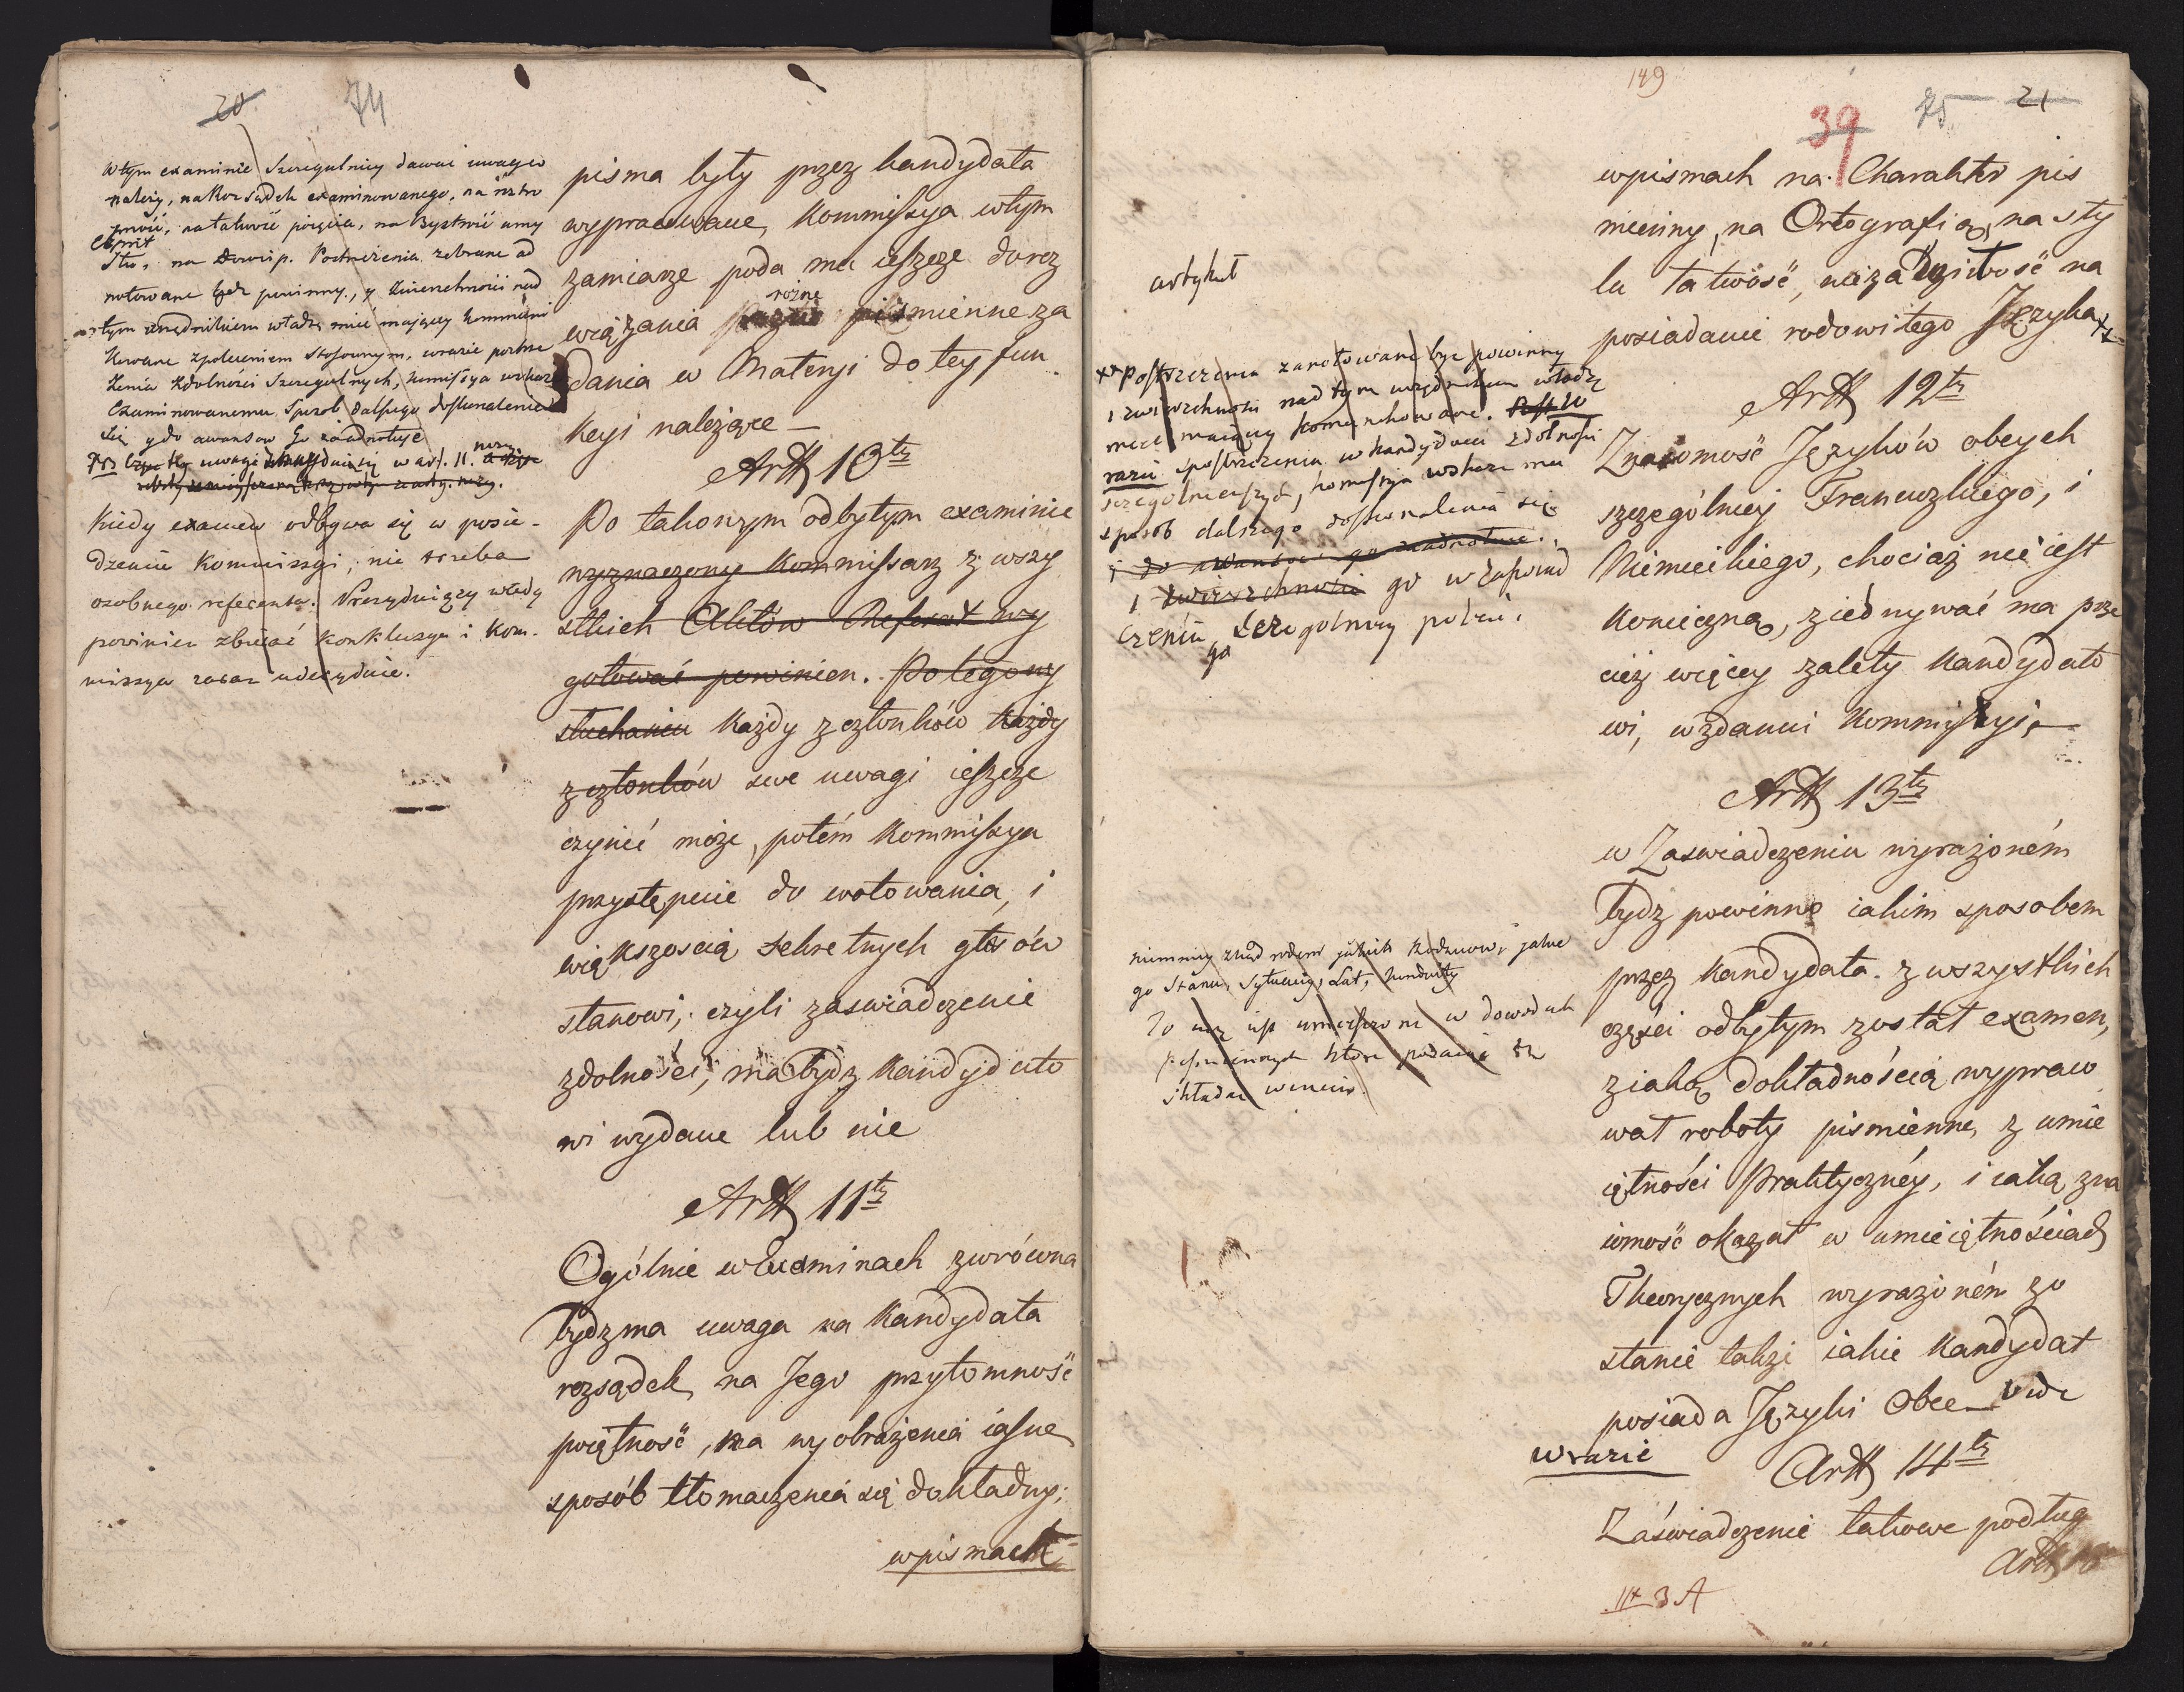 20 74
W tym examinie Szczegulniey dawać uwagę
należy, na Rozsądek examinowanego, na
łatwość pojęcia, na Bystrość umy
słu, na Dowcip. Postrzeżenia zebrane ad
notowane bydź powinny, y Zwierzchności nad
tym urzędnikiem władzę mieć mającey kommuni
kowane z poleceniem stosownym, w razie postrze
żenia zdolności Szczegulnych, komissya wskaże
Examinowanemu Sposob dalszego doskonalenia
się y do awansow Go zaadnotuje
uwagi w art. 11.
Kiedy examen odbywa się w posie-
dzeniu Kommissyi, nie trzeba
osobnego referenta. Prezyduiący wtedy
powinien zbierać konkluzye i Kom-
missya zaraz udecyduie.
pisma były przez kandydata
wypracowane, Kommissya w tym
zamiarze poda mu ieszcze do roz
różne
wiązania piśmienne za
dania w Materyi do tey fun
kcyi należące —
Artt 10ty
Po takowym odbytym examinie
wyznaczony Kommissarz z wszy
stkich Aktów Referat wy
gotować powinien. Po tego wy
słuchaniu Każdy z członków każdy
z członków swe uwagi ieszcze
czynić może, potém Kommissya
przystępuie do wotowania, i
większoscią sekretnych głosów
stanowi, czyli zaswiadczenie
zdolności, ma bydz Kandydato
wi wydane lub nie
Artt 11ty
Ogólnie w Examinach zwrócona
bydz ma uwaga na Kandydata
rozsądek, na Jego przytomność
poiętność, na wyobrażenia iasne
sposób tłomaczenia się dokładny;
w pismach
149
39 75 21
artykuł
Postrzezenia zanotowane być powinny
i zwierzchnosci nad tym urzędnikiem władzę
mieć maiącey komunikowane. W
razie spostrzezenia w kandydacie zdolności
szczegolnieyszych, komissya wskaze mu
sposób dalszego doskonalenia się
i do awansów go zaadnotuie.
i zwierzchności go w zaswiad
czeniu szczegolniey poleci
go
niemniey zkąd rodem jakich Rodzicow, jakie
go Stanu, Sytuacyi, Lat, konduity
To iuż iest umieszczone w dowodach
pismiennych które podaiący się
składać winien.
w pismach na Charakter pis
mienny, na Ortografią, na sty
lu łatwość, niezawisłość na
posiadanie rodowitego Języka
Artt 12ty
Znaiomość Języków obcych
szczególniey Francuzkiego, i
Niemieckiego, chociaż nie iest
konieczną, ziednywać ma prze
cież więcey zalety Kandydato
wi, w zdaniu Kommissyi.
Artt 13ty
w Zaswiadczeniu wyrażoném
bydz powinno iakim sposobem
przez Kandydata z wszystkich
części odbytym został examen,
z iaką dokładnością wypraco
wał roboty pismienne, z umie
iętności Praktyczney, i iaką zna
iomość okazał w umieiętnościach
Theorycznych wyrażoném zo
stanie także iakie Kandydat
posiada Języki Obce — Vide
w razie
Artt 14ty
Zaświadczenie takowe podług
Artt
III 3 A